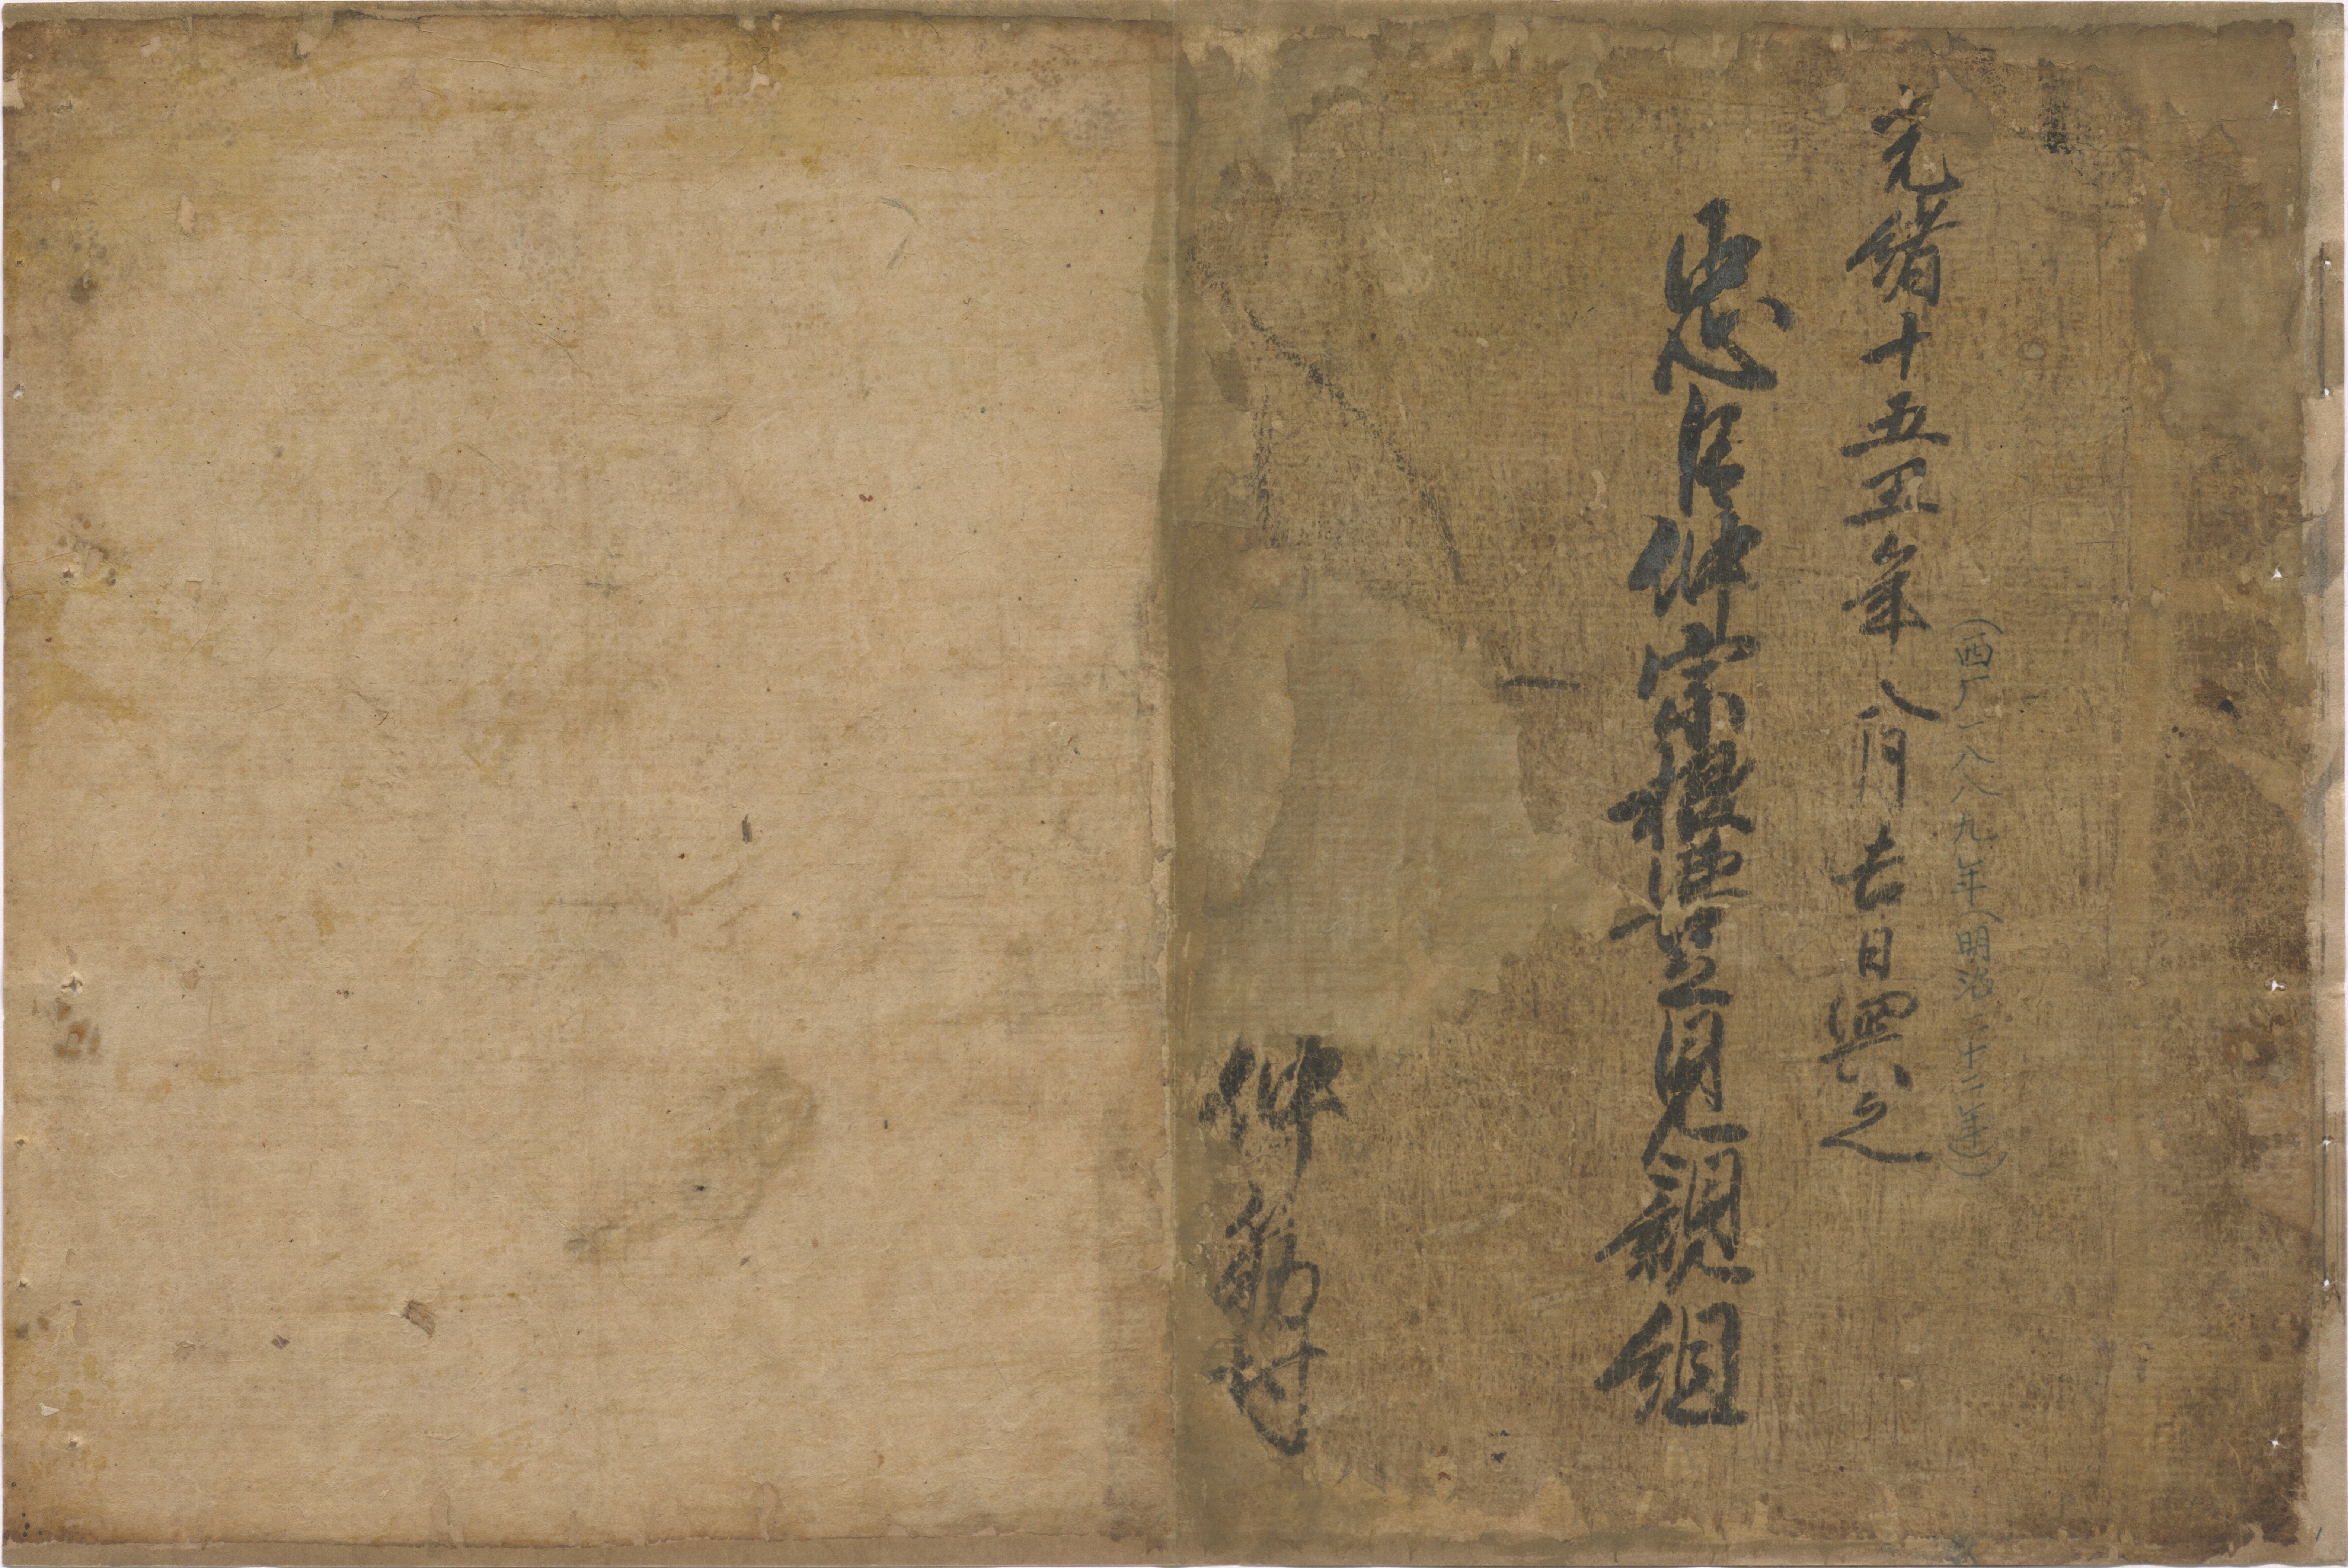 (西厂一八八九年(明治二十二年)
光緒十五丑年八月吉日興之
忠臣仲宗根豊見親組
仲筋村